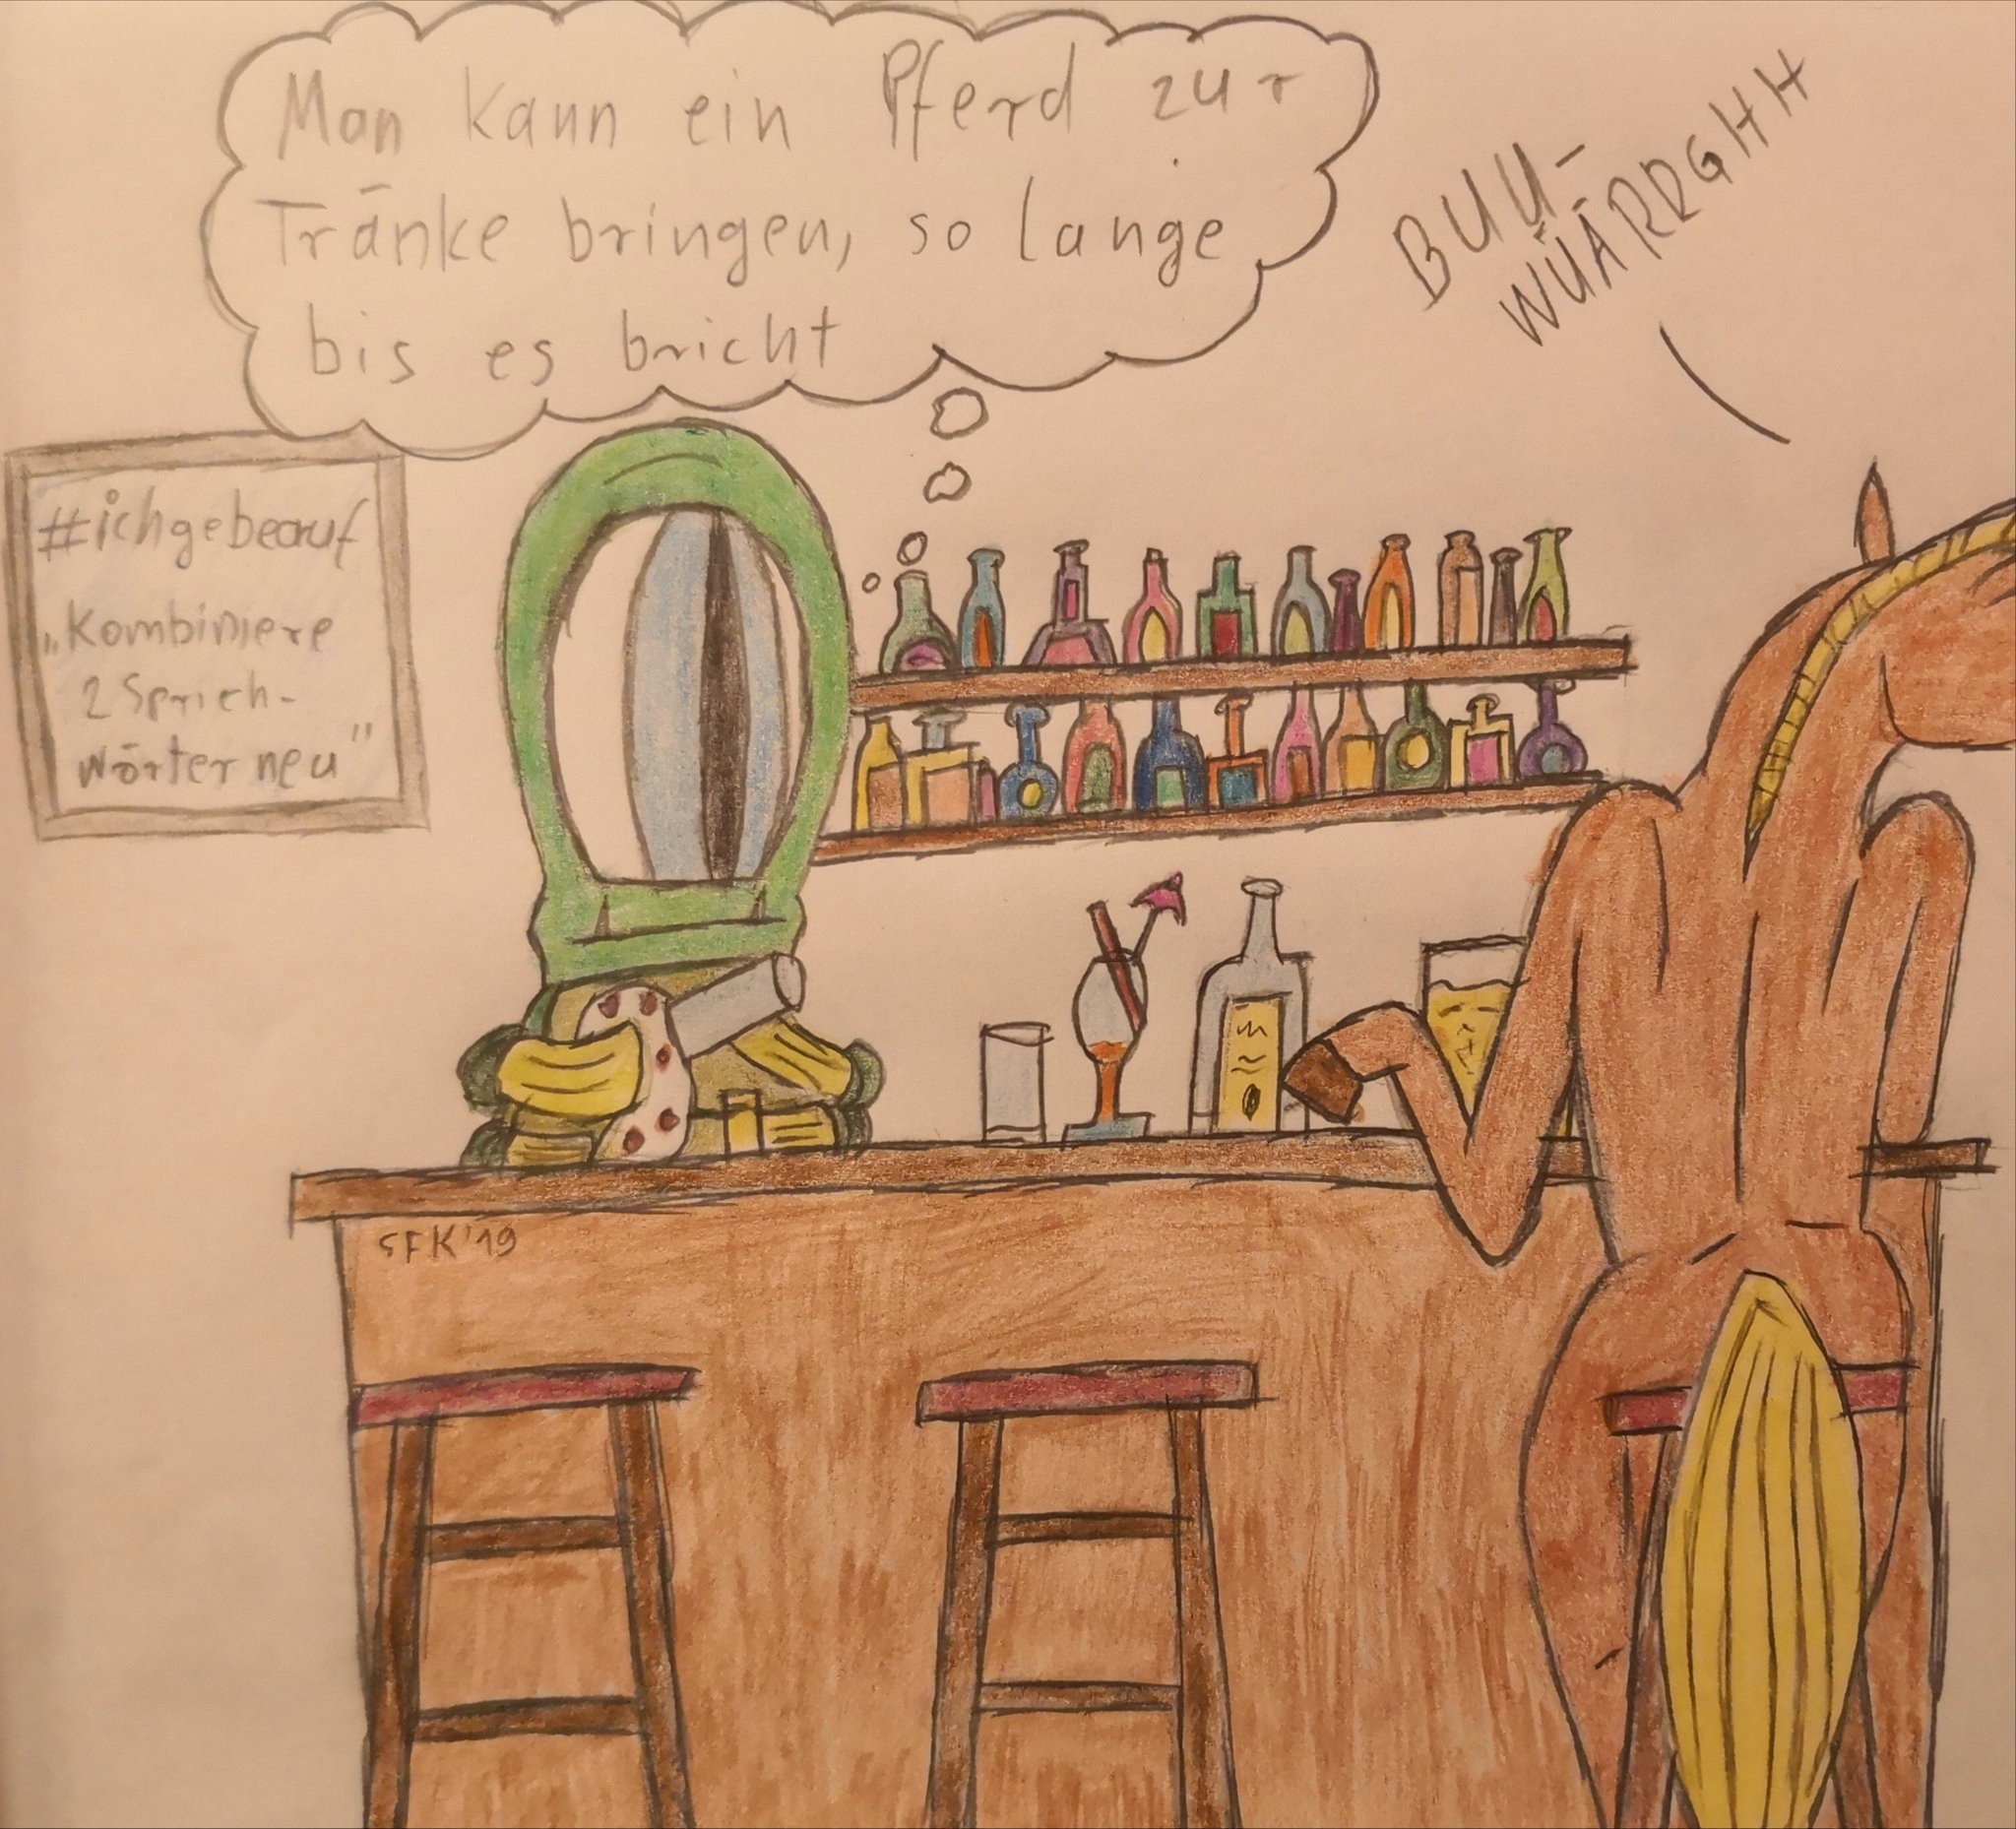 Man kann ein Pferd zur
Tränke bringen, so lange
bis es bricht
BUU-
WÜÄRRGHH
#ichgebeauf
„Kombiniere
2 Sprich-
wörter neu"
SFK '19